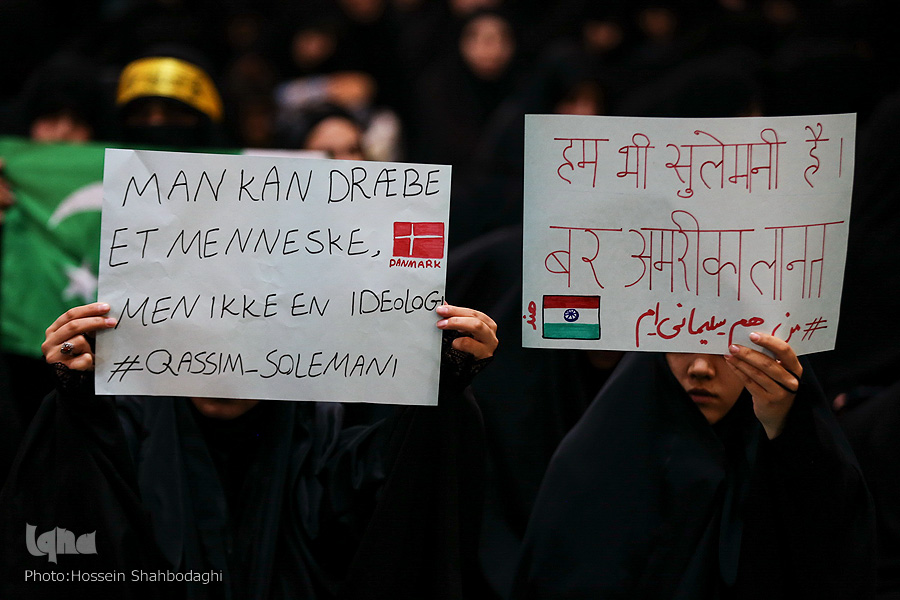 MAN KAN DRÆBE
ET MENNESKE,
DANMARK
MEN IKKE EN IDEOLOGI
#QASSIM_SOLEMANI
हम भी सुलेमनी है।
बर अमरीका लानत
هند
#من_هم_سلیمانی_ام
Iqna
Photo:Hossein Shahbodaghi